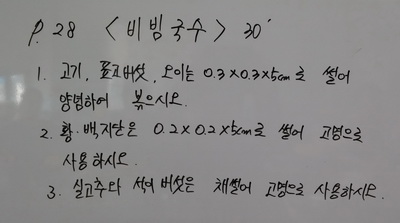 p. 28 <비빔국수> 30′
1. 고기, 표고버섯, 오이는 0.3×0.3×5cm로 썰어
양념하여 볶으시오.
2. 황·백지단은 0.2×0.2×5cm로 썰어 고명으로
사용하시오.
3. 실고추와 석이버섯은 채썰어 고명으로 사용하시오.